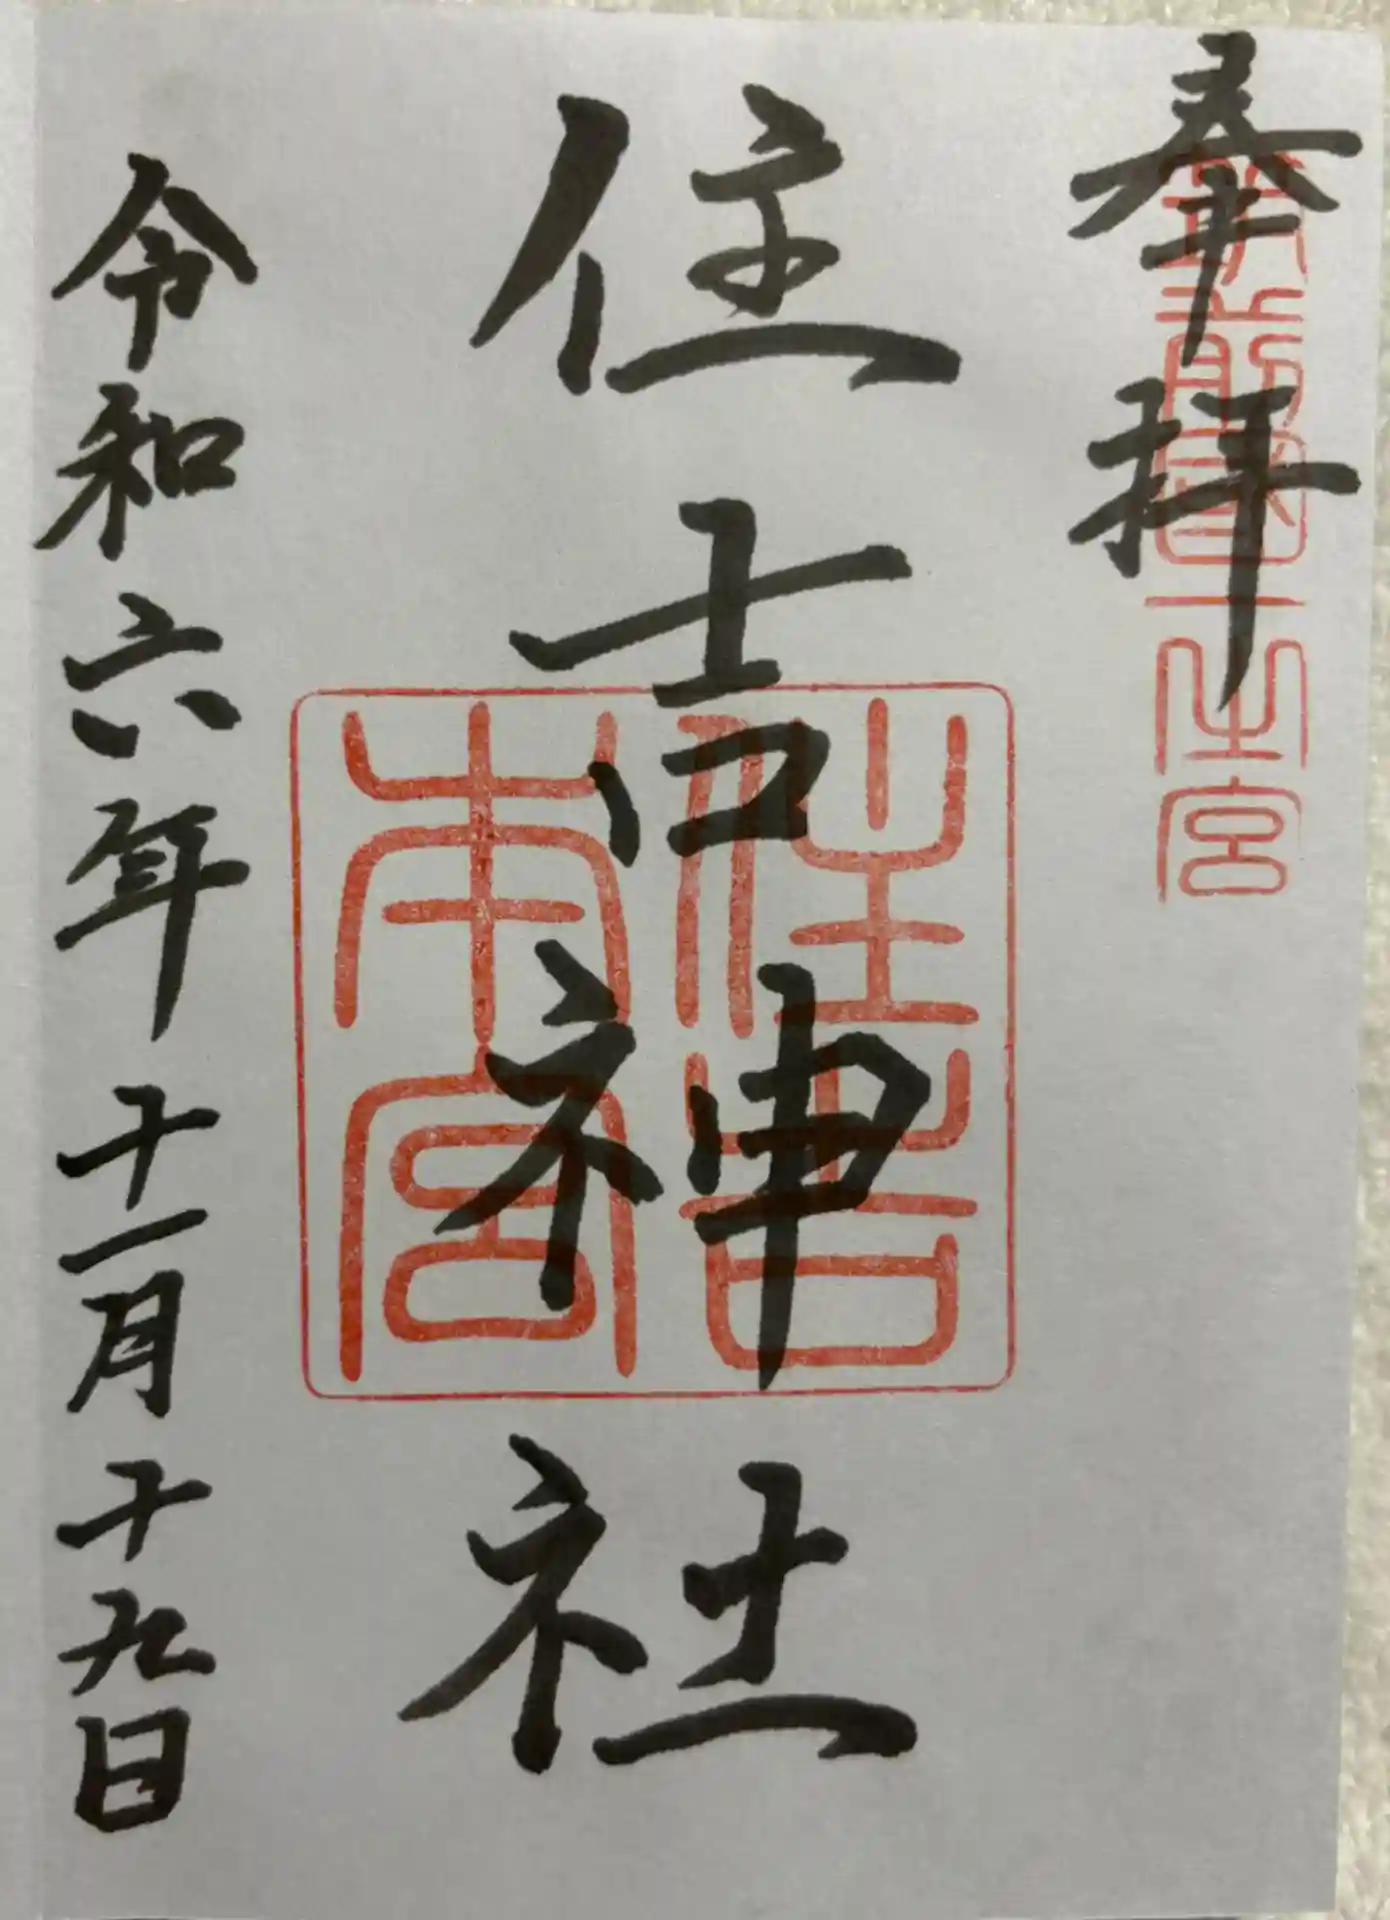 奉拝
筑前國一之宮
住吉神社
住吉
本宮
令和六年十一月十九日